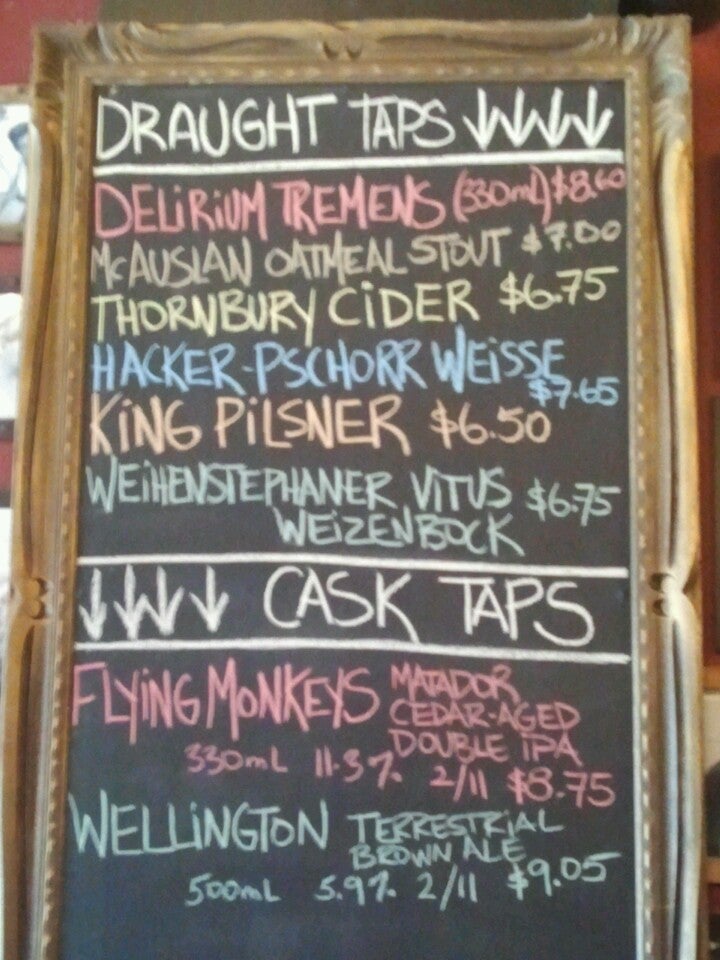 DRAUGHT TAPS ↓↓↓↓
DELiRiUM TREMENS (330mL) $8.60
McAUSLAN OATMEAL STOUT $7.00
THORNBURY CiDER $6.75
HACKER-PSCHORR WEiSSE
$7.65
KiNG PiLSNER $6.50
WEiHENSTEPHANER ViTUS $6.75
WEiZENBOCK
↓↓↓↓ CASK TAPS
FLYiNG MONKEYS MATADOR
CEDAR-AGED
DOUBLE IPA
330mL 11.3% 2/11 $8.75
WELLiNGTON TERRESTRiAL
BROWN ALE
500mL 5.9% 2/11 $9.05